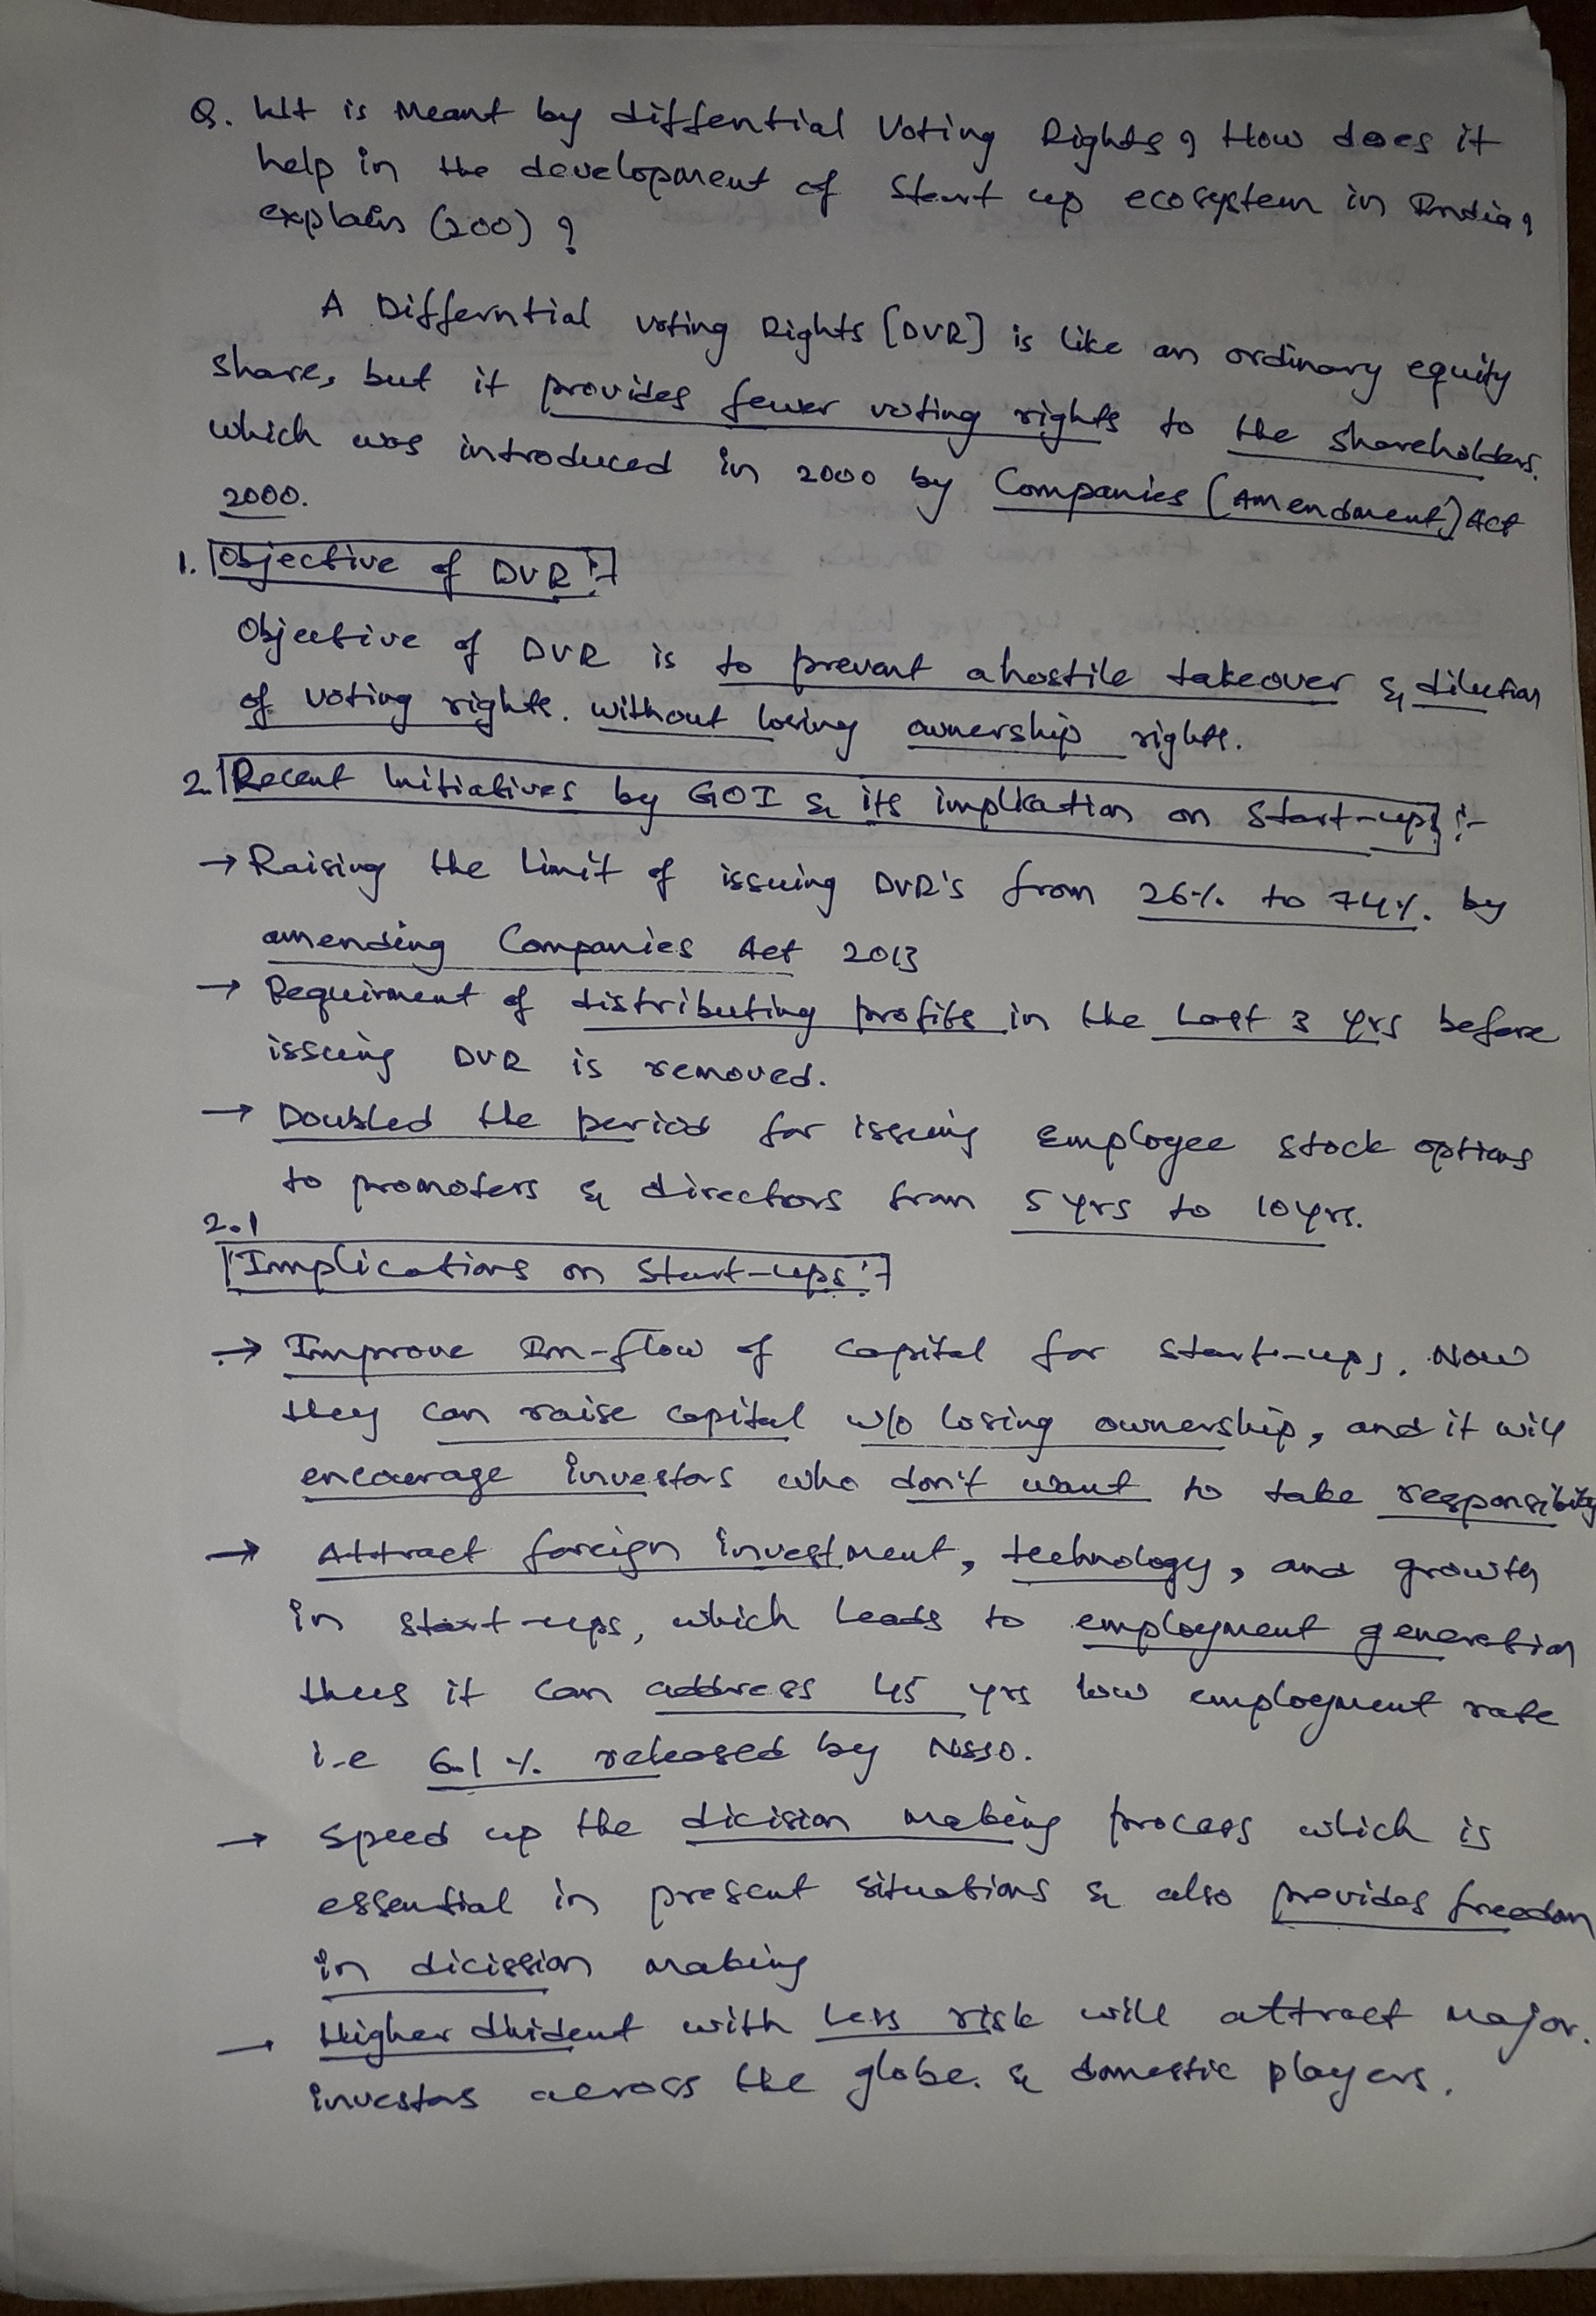 Q. Wt is Meant by diffential Voting Rights? How does it
help in the development of Start up ecosystem in India?
explain (200) ?
A Differntial voting Rights [DVR] is like an ordinary equity
share, but it provides fewer voting rights to the shareholders.
which was introduced in 2000 by Companies (Amendment) Act
2000.
1. Objective of DVR :-
Objective of DVR is to prevent a hostile takeover & dilution
of voting rights. without losing ownership rights.
2. Recent Initiatives by GOI & its implication on Start-ups :-
→ Raising the limit of issuing DVR's from 26% to 74%. by
amending Companies Act 2013
→ Requirment of distributing profits in the last 3 yrs before
issuing DVR is removed.
→ Doubled the period for issuing employee stock options
to promoters & directors from 5 yrs to 10 yrs.
2.1
Implications on Start-ups :-
→ Improve In-flow of capital for start-ups. Now
they can raise capital w/o losing ownership, and it will
encourage investors who don't want to take responsibility
→ Attract foreign investment, technology, and growth
in start-ups, which leads to employment generation
thus it can address 45 yrs low employment rate
i.e 6.1 %. released by NSSO.
→ Speed up the dicision making process which is
essential in present situations & also provides freedom
in dicission making
→ Higher divident with less risk will attract major.
investors across the globe. & domestic players.